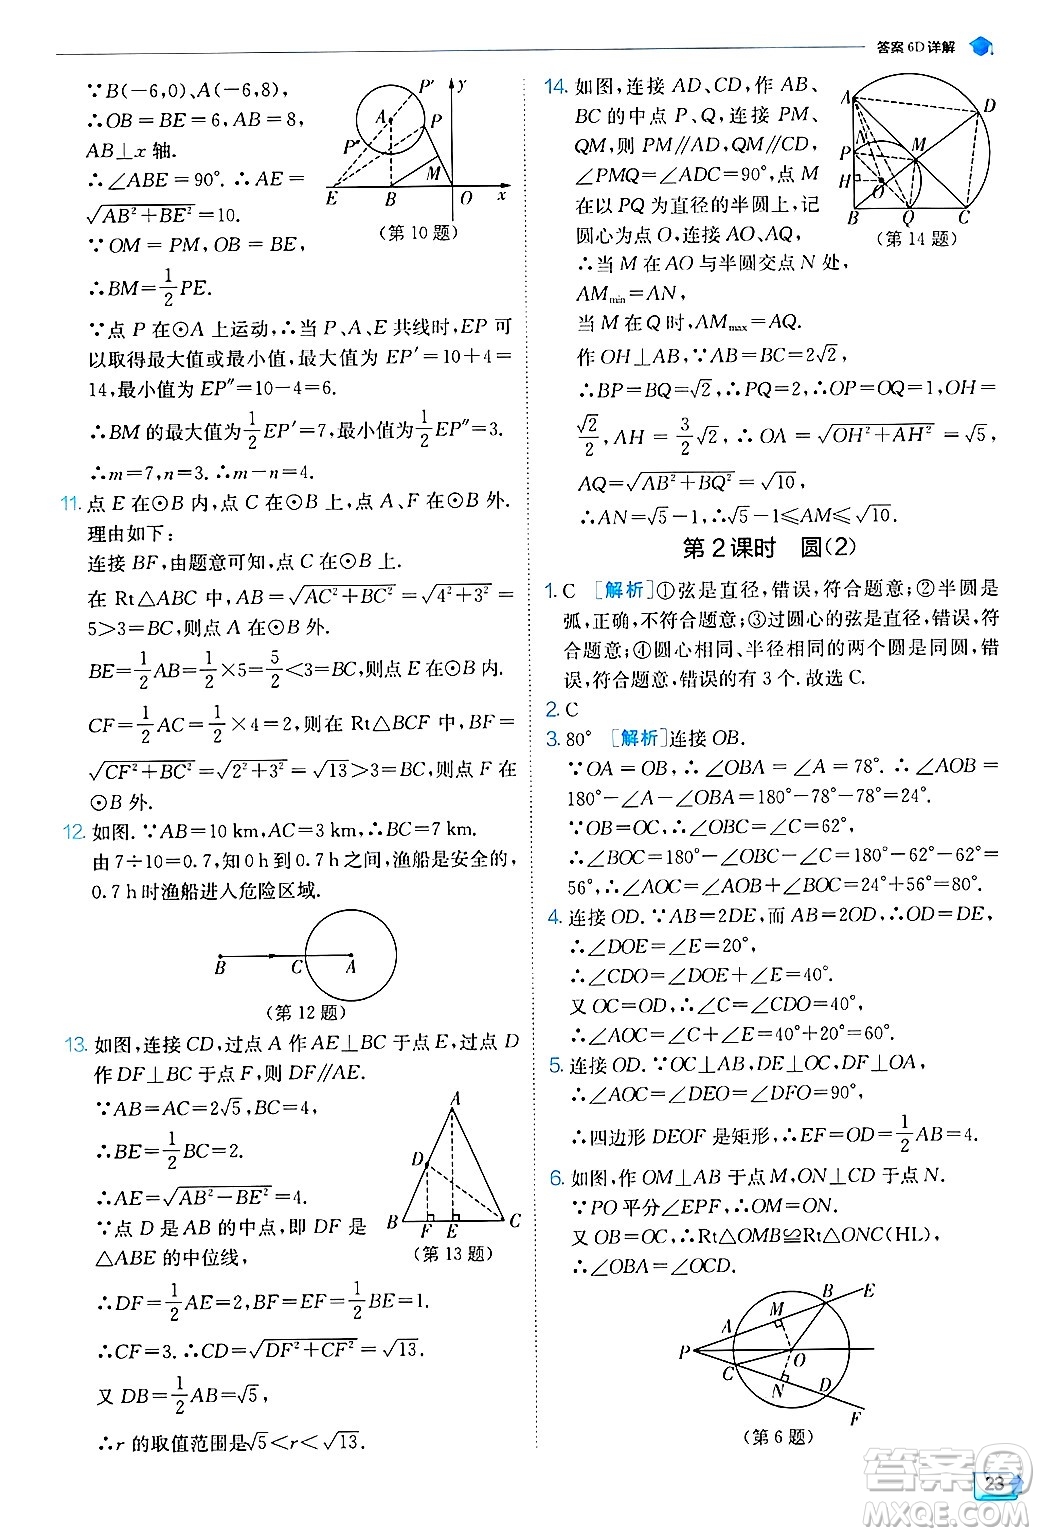 答案 6D 详解
∵B(-6,0)、A(-6,8),
∴OB=BE=6,AB=8,
AB⊥x 轴.
∴∠ABE=90°. ∴AE=
√(AB²+BE²)=10.
∵OM=PM,OB=BE,
∴BM=1/2PE.
P′ y A P P″ M E B O x
(第 10 题)
∵点 P 在⊙A 上运动,∴当 P、A、E 共线时,EP 可
以取得最大值或最小值,最大值为 EP′=10+4=
14,最小值为 EP″=10-4=6.
∴BM 的最大值为1/2EP′=7,最小值为1/2EP″=3.
∴m=7,n=3. ∴m-n=4.
11. 点 E 在⊙B 内,点 C 在⊙B 上,点 A、F 在⊙B 外.
理由如下:
连接 BF,由题意可知,点 C 在⊙B 上.
在 Rt△ABC 中,AB=√(AC²+BC²)=√(4²+3²)=
5>3=BC,则点 A 在⊙B 外.
BE=1/2AB=1/2×5=5/2<3=BC,则点 E 在⊙B 内.
CF=1/2AC=1/2×4=2,则在 Rt△BCF 中,BF=
√(CF²+BC²)=√(2²+3²)=√13>3=BC,则点 F 在
⊙B 外.
12. 如图. ∵AB=10 km,AC=3 km,∴BC=7 km.
由 7÷10=0.7,知 0 h 到 0.7 h 之间,渔船是安全的,
0.7 h 时渔船进入危险区域.
B C A
(第 12 题)
13. 如图,连接 CD,过点 A 作 AE⊥BC 于点 E,过点 D
作 DF⊥BC 于点 F,则 DF∥AE.
∵AB=AC=2√5,BC=4,
∴BE=1/2BC=2,
∴AE=√(AB²-BE²)=4.
∵点 D 是 AB 的中点,即 DF 是
△ABE 的中位线,
A D B F E C
(第 13 题)
∴DF=1/2AE=2,BF=EF=1/2BE=1.
∴CF=3. ∴CD=√(DF²+CF²)=√13.
又 DB=1/2AB=√5,
∴r 的取值范围是√5<r<√13.
14. 如图,连接 AD、CD,作 AB、
BC 的中点 P、Q,连接 PM、
QM,则 PM∥AD,QM∥CD,
∠PMQ=∠ADC=90°,点 M
在以 PQ 为直径的半圆上,记
圆心为点 O,连接 AO、AQ.
∴当 M 在 AO 与半圆交点 N 处,
AMmin=AN,
当 M 在 Q 时,AMmax=AQ.
A D P M H O B Q C
(第 14 题)
作 OH⊥AB. ∵AB=BC=2√2,
∴BP=BQ=√2,∴PQ=2,∴OP=OQ=1,OH=
√2/2,AH=3/2√2,∴OA=√(OH²+AH²)=√5,
AQ=√(AB²+BQ²)=√10.
∴AN=√5-1,∴√5-1≤AM≤√10.
第 2 课时 圆(2)
1. C [解析]①弦是直径,错误,符合题意;②半圆是
弧,正确,不符合题意;③过圆心的弦是直径,错误,符
合题意;④圆心相同、半径相同的两个圆是同圆,错
误,符合题意,错误的有 3 个. 故选 C.
2. C
3. 80° [解析]连接 OB.
∵OA=OB,∴∠OBA=∠A=78°. ∴∠AOB=
180°-∠A-∠OBA=180°-78°-78°=24°.
∵OB=OC,∴∠OBC=∠C=62°,
∴∠BOC=180°-∠OBC-∠C=180°-62°-62°=
56°,∴∠AOC=∠AOB+∠BOC=24°+56°=80°.
4. 连接 OD. ∵AB=2DE,而 AB=2OD,∴OD=DE,
∴∠DOE=∠E=20°,
∴∠CDO=∠DOE+∠E=40°.
又 OC=OD,∴∠C=∠CDO=40°,
∴∠AOC=∠C+∠E=40°+20°=60°.
5. 连接 OD. ∵OC⊥AB,DE⊥OC,DF⊥OA,
∴∠AOC=∠DEO=∠DFO=90°,
∴四边形 DEOF 是矩形,∴EF=OD=1/2AB=4.
6. 如图,作 OM⊥AB 于点 M,ON⊥CD 于点 N.
∵PO 平分∠EPF,∴OM=ON.
又 OB=OC,∴Rt△OMB≌Rt△ONC(HL),
∴∠OBA=∠OCD.
E B M A P O C N D F
(第 6 题)
23
答案圈
MXQE.COM